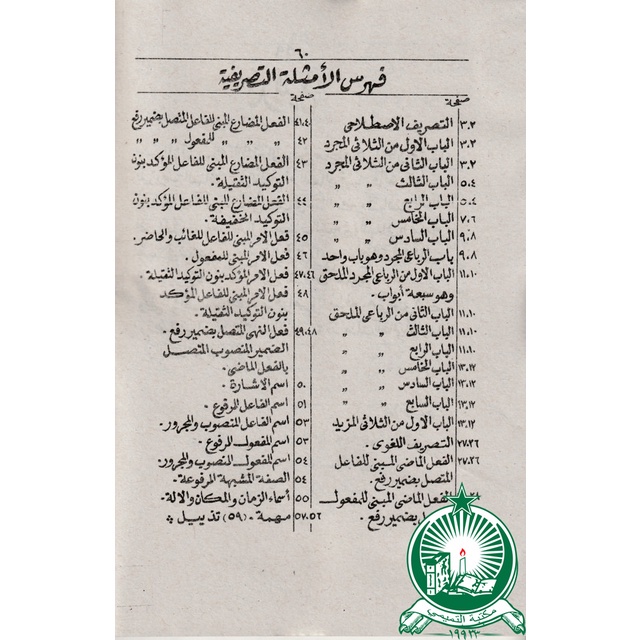 ٦٠
فهرس الأمثلة التصريفية
صفحة
٣،٢ التصريف الاصطلاحى
٣،٢ الباب الاول من الثلاثى المجرد
٣،٢ الباب الثانى من الثلاثى المجرد
٥،٤ الباب الثالث " "
٥،٤ الباب الرابع " "
٧،٦ الباب الخامس " "
٩،٨ الباب السادس " "
٩،٨ باب الرباعى المجرد وهو باب واحد
١١،١٠ الباب الاول من الرباعى المجرد الملحق
وهو سبعة أبواب .
١١،١٠ الباب الثانى من الرباعى الملحق
١١،١٠ الباب الثالث " "
١١،١٠ الباب الرابع " "
١٣،١٢ الباب الخامس " "
١٣،١٢ الباب السادس " "
١٣،١٢ الباب السابع " "
١٣،١٢ الباب الاول من الثلاثى المزيد
٢٧،٢٦ التصريف اللغوى .
٢٧،٢٦ الفعل الماضى المبنى للفاعل
المتصل بضمير رفع .
الفعل الماضى المبنى للمفعول
بضمير رفع .
صفحة
٤١،٤٠ الفعل المضارع المبنى للفاعل المتصل بضمير رفع
٤٢ " " " للمفعول " " "
٤٣ الفعل المضارع المبنى للفاعل المؤكد بنون
التوكيد الثقيلة .
٤٤ الفعل المضارع المبنى للفاعل المؤكد بنون
التوكيد الخفيفة .
٤٥ فعل الامر المبنى للفاعل للغائب والحاضر .
٤٦ فعل الامر المبنى للمفعول .
٤٧،٤٦ فعل الامر المؤكد بنون التوكيد الثقيلة .
٤٨ فعل الامر المبنى للفاعل المؤكد
بنون التوكيد الثقيلة .
٤٩،٤٨ فعل النهى المتصل بضمير رفع .
الضمير المنصوب المتصل
بالفعل الماضى .
٥٠ اسم الاشارة .
٥١ اسم الفاعل المرفوع .
٥٣ اسم الفاعل المنصوب والمجرور .
٥٣ اسم المفعول المرفوع .
٥٤ اسم المفعول المنصوب والمجرور .
٥٤ الصفة المشبهة المرفوعة .
٥٥ أسماء الزمان والمكان والالة .
٥٧،٥٦ مهمة . (٥٩) تذييل
مكتبة القميصي